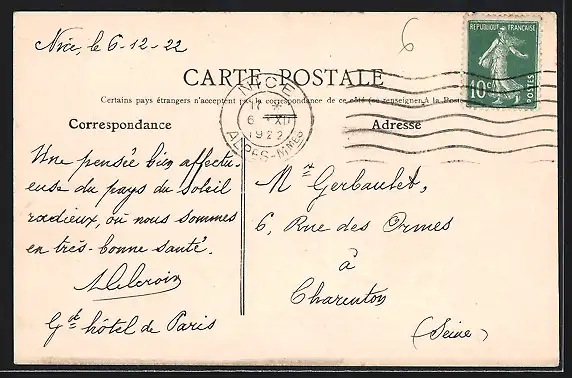 Nice, le 6-12-22
6
REPUBLIQUE FRANÇAISE
10c
POSTES
CARTE POSTALE
NICE
6 - XII
1922
ALPES-MMES
Certains pays étrangers n'acceptent pas la correspondance de ce côté (se renseigner à la Poste
Correspondance
Adresse
Une pensée bien affectu-
euse du pays du soleil
radieux, où nous sommes
en très-bonne santé.
Gd hôtel de Paris
Mr Gerbaulet,
6, Rue des Ormes
à
Charenton
(Seine)